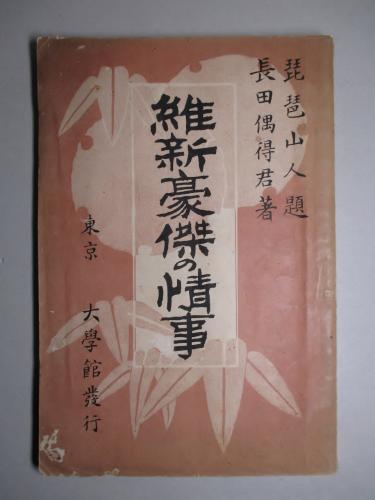 琵琶山人題
長田偶得君著
維新豪傑の情事
東京 大學館發行